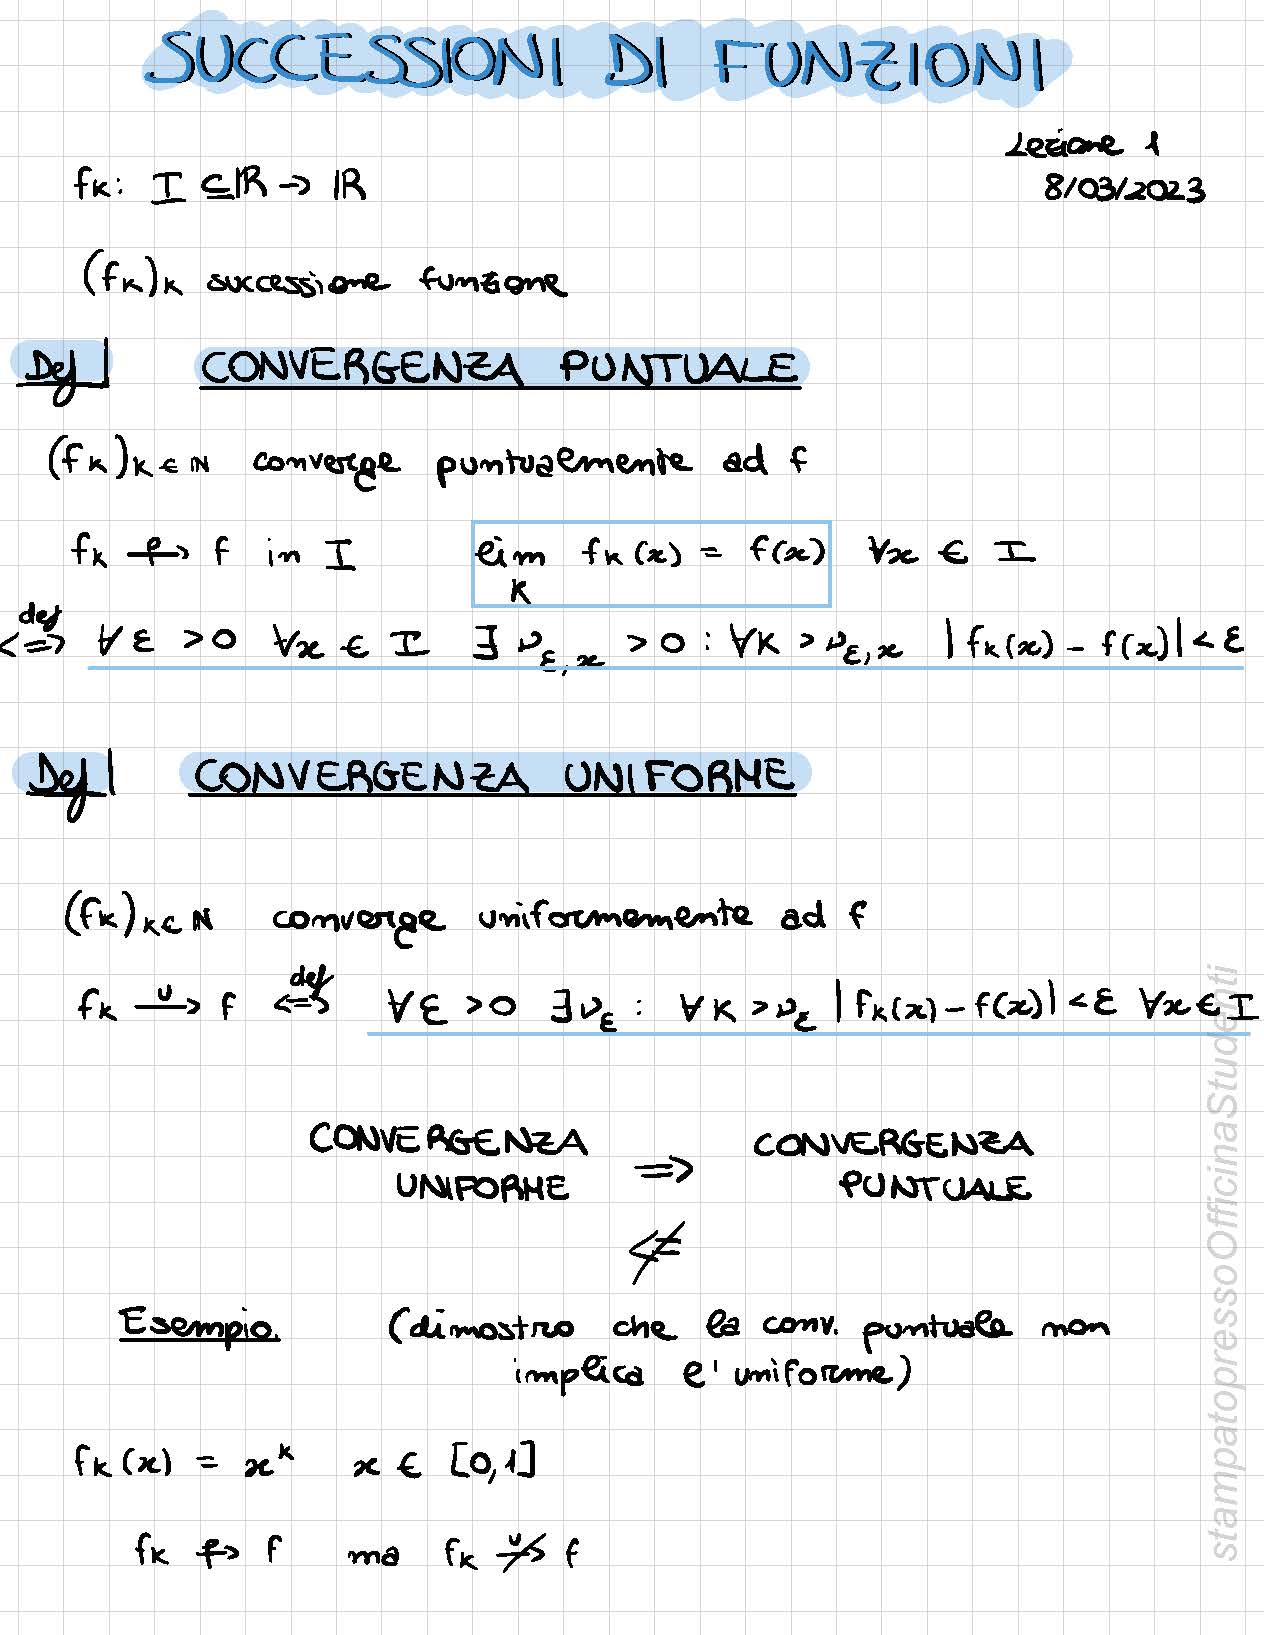 SUCCESSIONI DI FUNZIONI
Lezione 1
8/03/2023
fk: I ⊆ ℝ → ℝ
(fk)k successione funzione
Def| CONVERGENZA PUNTUALE
(fk)k∈ℕ converge puntualmente ad f
fk —p→ f in I lim k fk(x) = f(x) ∀x ∈ I
<=>def ∀ε >0 ∀x ∈ I ∃ νε,x >0 : ∀k > νε,x |fk(x) - f(x)| < ε
Def| CONVERGENZA UNIFORME
(fk)k∈ℕ converge uniformemente ad f
fk —u→ f <=>def ∀ε >0 ∃νε : ∀k > νε |fk(x) - f(x)| < ε ∀x ∈ I
CONVERGENZA UNIFORME => CONVERGENZA PUNTUALE
⇍
Esempio. (dimostro che la conv. puntuale non
implica l'uniforme)
fk(x) = x^k x ∈ [0,1]
fk —p→ f ma fk —u↛ f
stampatopressoOfficinaStudenti